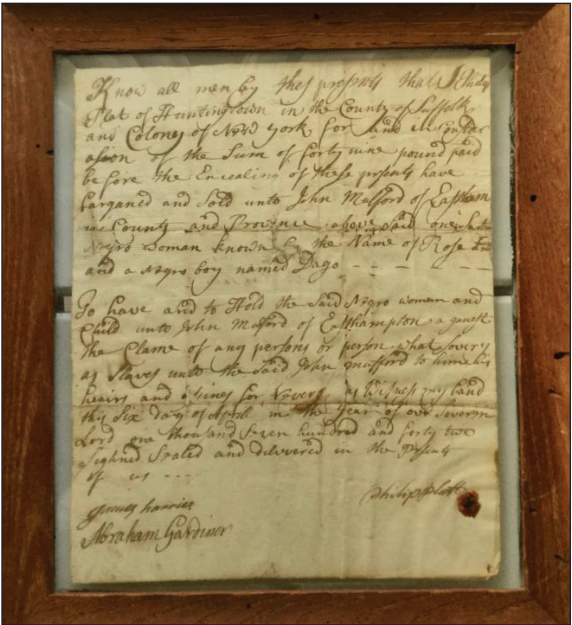 Know all men by thes presents that I Philip
Plat of Huntingtown in the County of Suffolk
and Coloney of New York for and in Consider
ation of the Sum of forty nine pound paid
before the Ensealing of these presents have
barganed and Sold unto John Mulford of Eastham
County and Province above said one
Negro Woman known by the Name of Rose
and a Negro boy named Dago - - - - -
To have and to Hold the Said Negro woman and
Child unto John Mulford of Easthampton a ganst
the Clame of any persons or person what sovery
as Slaves unto the Said John mulford to him his
heairs and asines for Ever as witness my hand
this Six day of April in the Year of our Soverin
Lord one thousand Seven hundred and forty two
Sighned Sealed and delivered in the
of us - - - -
Philip Platt
harries
Abraham Gardiner